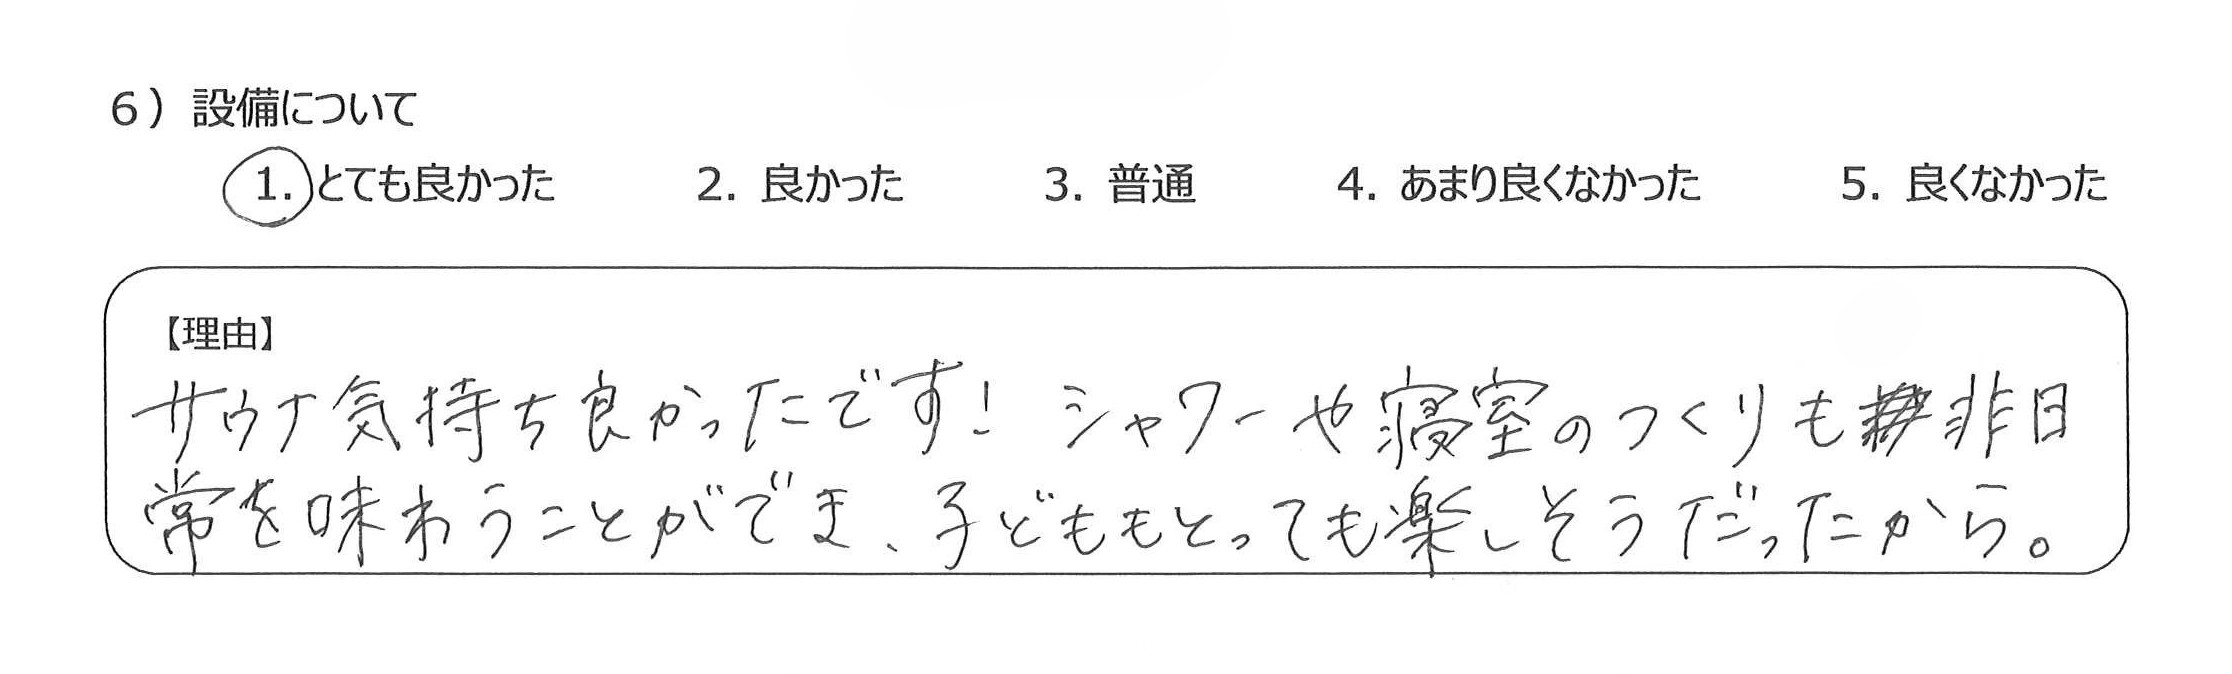 6）設備について
1. とても良かった 2. 良かった 3. 普通 4. あまり良くなかった 5. 良くなかった
【理由】
サウナ気持ち良かったです! シャワーや寝室のつくりも非日
常を味わうことがでま、子どももとっても楽しそうだったから。